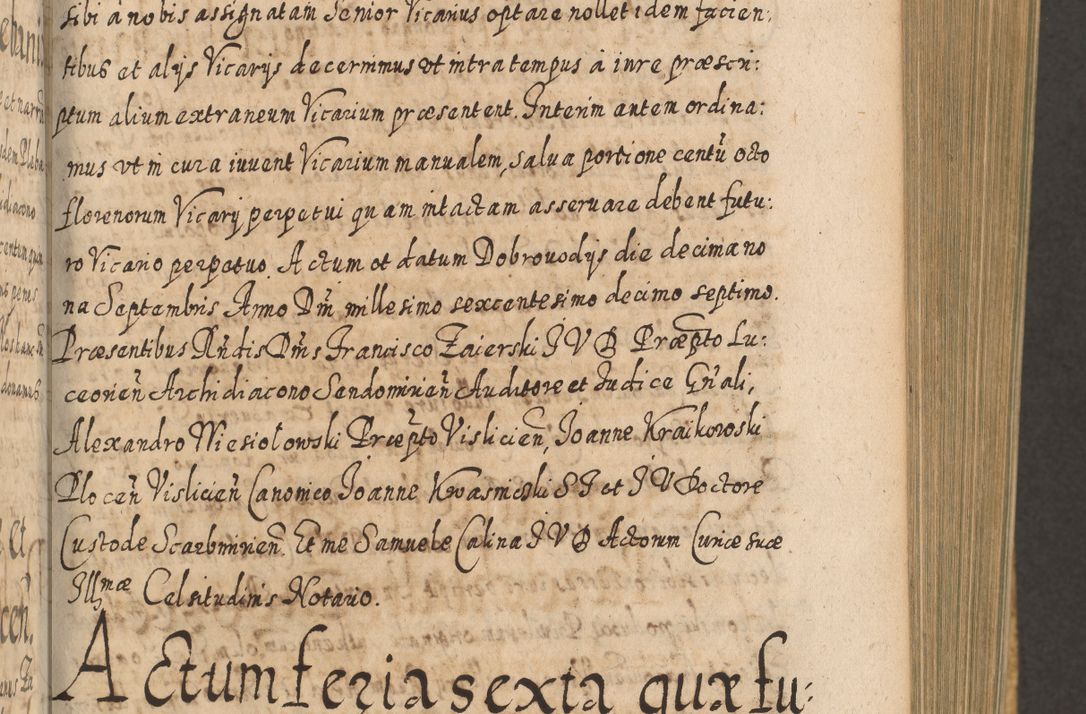 sibi a nobis assignatam Senior Vicarius optare nollet idem facien:
tibus et alijs Vicarijs decernimus vt intra tempus à iure præscri:
ptum alium extraneum Vicarium præsentent. Interim autem ordina:
mus vt in cura iuuent Vicarium manualem, salua portione centũ octo
florenorum Vicarij perpetui quam intactam asseruare debent futu:
ro Vicario perpetuo Actum et datum Dobrouodijs die decima no
na Septembris Anno Dñi millesimo sexcentesimo decimo septimo.
Præsentibus Rñdis Dñis Francisco Zaierski I V D Præpto Lu:
ceorieñ Archidiacono Sendomirieñ Auditore et Iudice Gñali,
Alexandro Wiesiołowski Præpto Vislicieñ, Joanne Kraikowski
Ploceñ Vislicieñ Canonico Joanne Kwasnicski S T et I V Doctore
Custode Scarbmirieñ. Et me Samuele Calina I V D Actorum Curiæ suæ
Illmæ Celsitudinis Notario.
Actum feria sexta quæ fu: